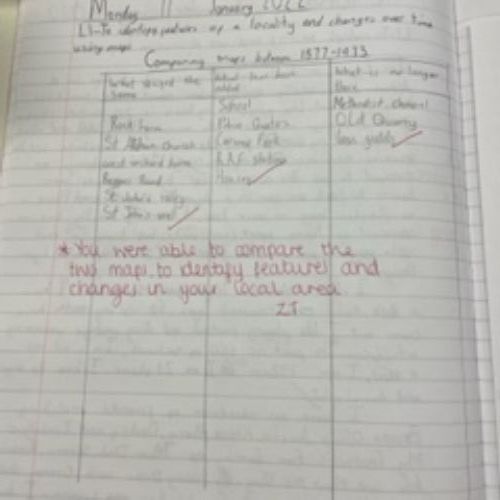 Monday January 2022
L1-To identify features of a locality and changes over time
using maps
Comparing maps between 1877-1933
What stayed the What has been What is no longer
same added there
School Methodist chapel
Rock farm Police Quarters Old Quarry
St Athan Church Caravan Park
west orchard farm RAF station
Road Houses
St John's valley
St John's well
* You were able to compare the
two maps to identify features and
changes in your local area
ZT